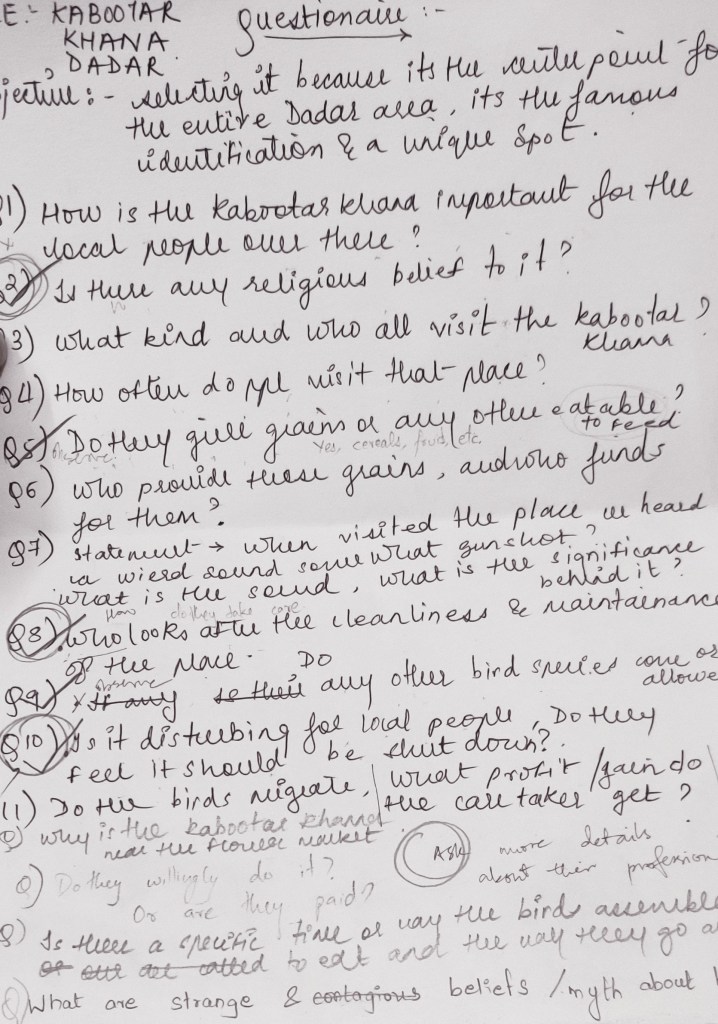 E:- KABOOTAR Questionaire :-
KHANA
DADAR
jective :- selecting it because its the center point fo
the entire Dadar area, its the famous
identification & a unique spot.
Q1) How is the kabootar khana important for the
local people over there ?
Q2) Is there any religious belief to it ?
Q3) What kind and who all visit the kabootar ?
khana
Q4) How often do ppl visit that place ?
Q5) Do they give grains or any other eatable ?
to feed
observe Yes, cereals, etc.
Q6) who provide these grains, and who funds
for them ?
Q7) Statement → when visited the place we heard
a wierd sound some what gunshot ?
what is the sound, what is the significance
behind it ?
How do they take care
Q8) Who looks after the cleanliness & maintainance
of the place. DO
observe
Q9) If any so their any other bird species come or
allowe
Q10) Is it disturbing for local people, Do they
feel it should be shut down?
11) Do the birds migrate, what profit /gain do
the care taker get ?
Q) why is the kabootar khanna
near the flower market.
ASK more details
about their profession
Q) Do they willingly do it ?
Or are they paid ?
8) Is there a specific time or way the birds assemble
or are called to eat and the way they go a
Q) What are strange & contagious beliefs / myth about